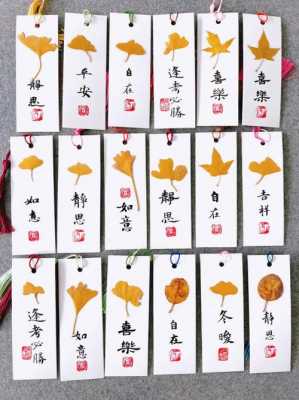 靜思
平安
自在
逢考必勝
喜樂
喜樂
如意
靜思
如意
靜思
自在
吉祥
逢考必勝
如意
喜樂
自在
冬暖
靜思